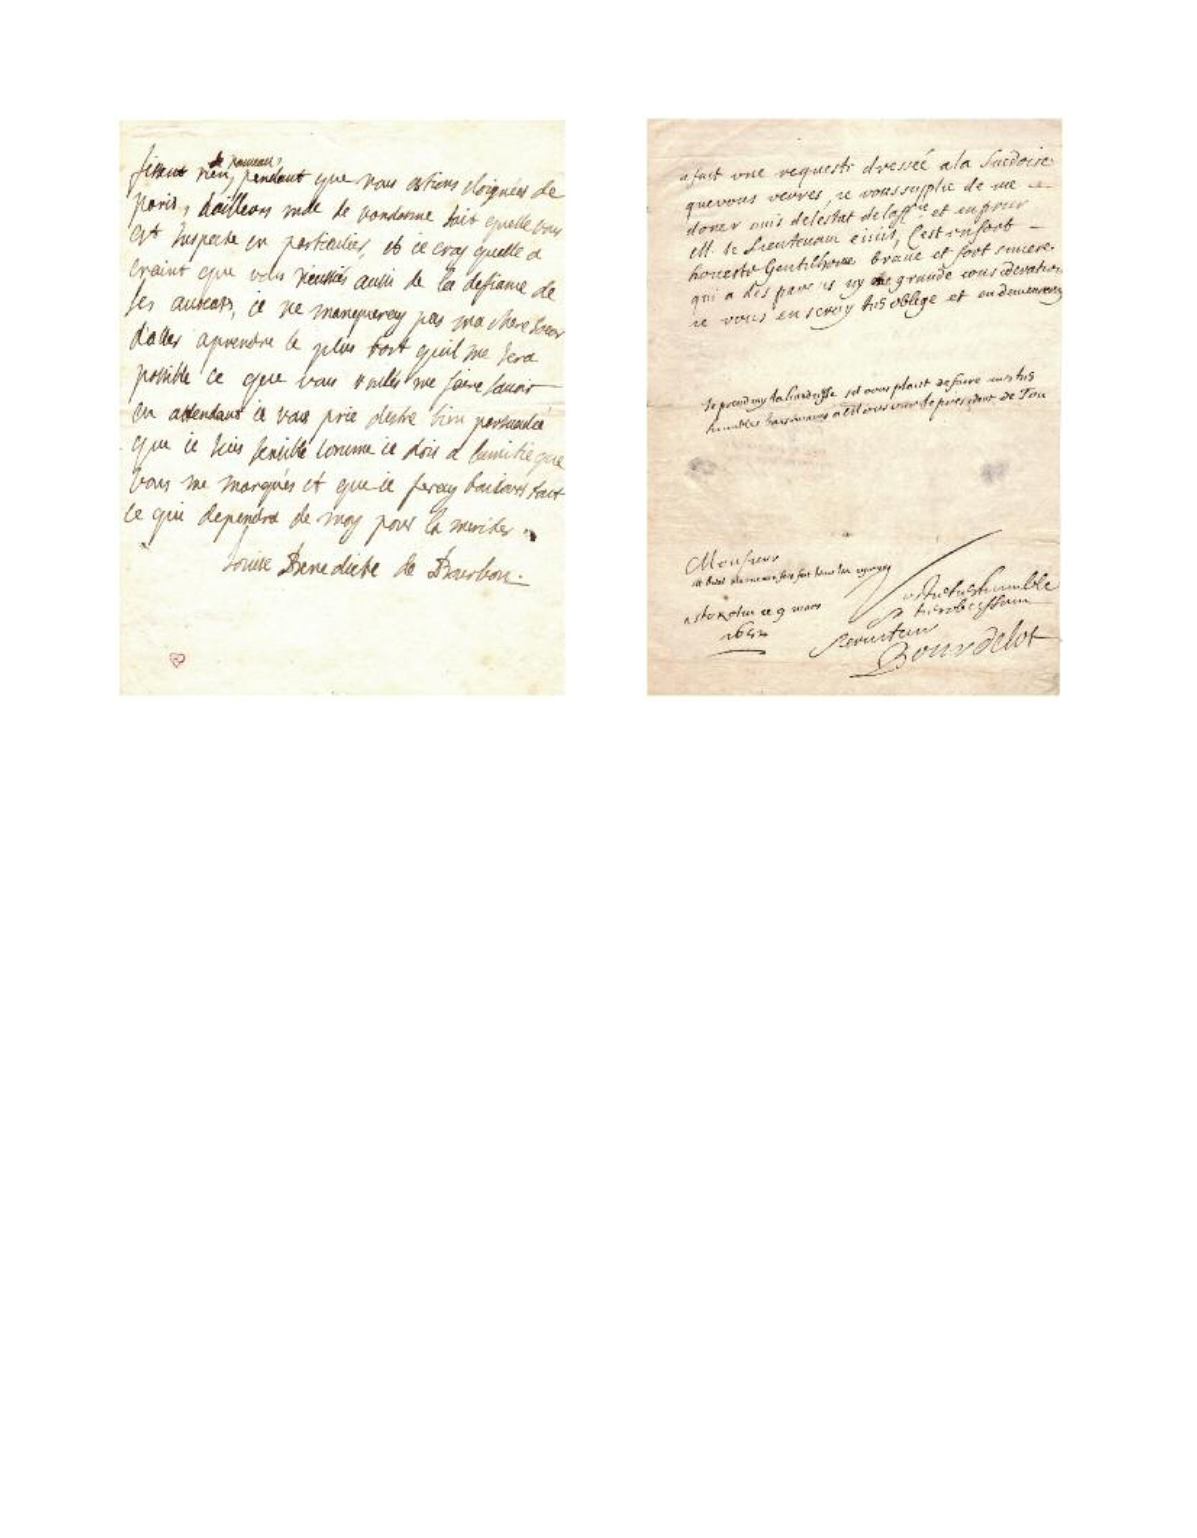 fissent rien de nouveau, pendant que nous estions eloignées de
paris, dailleurs mde de vandosme sait quelle vous
est suspecte en particulier, et ie croy quelle a
craint que vous neussiés aussi de la defiance de
ses auocats, ie ne manqueray pas ma chere soeur
daller aprendre le plus tost quil me sera
possible ce que vous voulés me faire sauoir
en attendant ie vous prie destre bien persuadée
que ie suis sensible comme ie dois a lamitie que
vous me marqués et que ie feray toujours tout
ce qui dependra de moy pour la meriter.
Louise Benedicte de Bourbon.
a fait une requeste dressée a la suedoise
que vous verres, ie vous supplie de me
doner auis de lestat de laffre et
M. le Lieutenant ciuil, Cest un fort
honeste Gentilhome braue et fort sincere
qui a des parens icy de grande consideration
ie vous en seray tres oblige et en demeureray
Ie prend icy la hardiesse sil vous plaist de faire mes tres
humbles baisemains a le president de Tou
Monsieur
a stokolm ce 9 mars
vostre tres humble
tres obeissant
seruiteur
Bourdelot